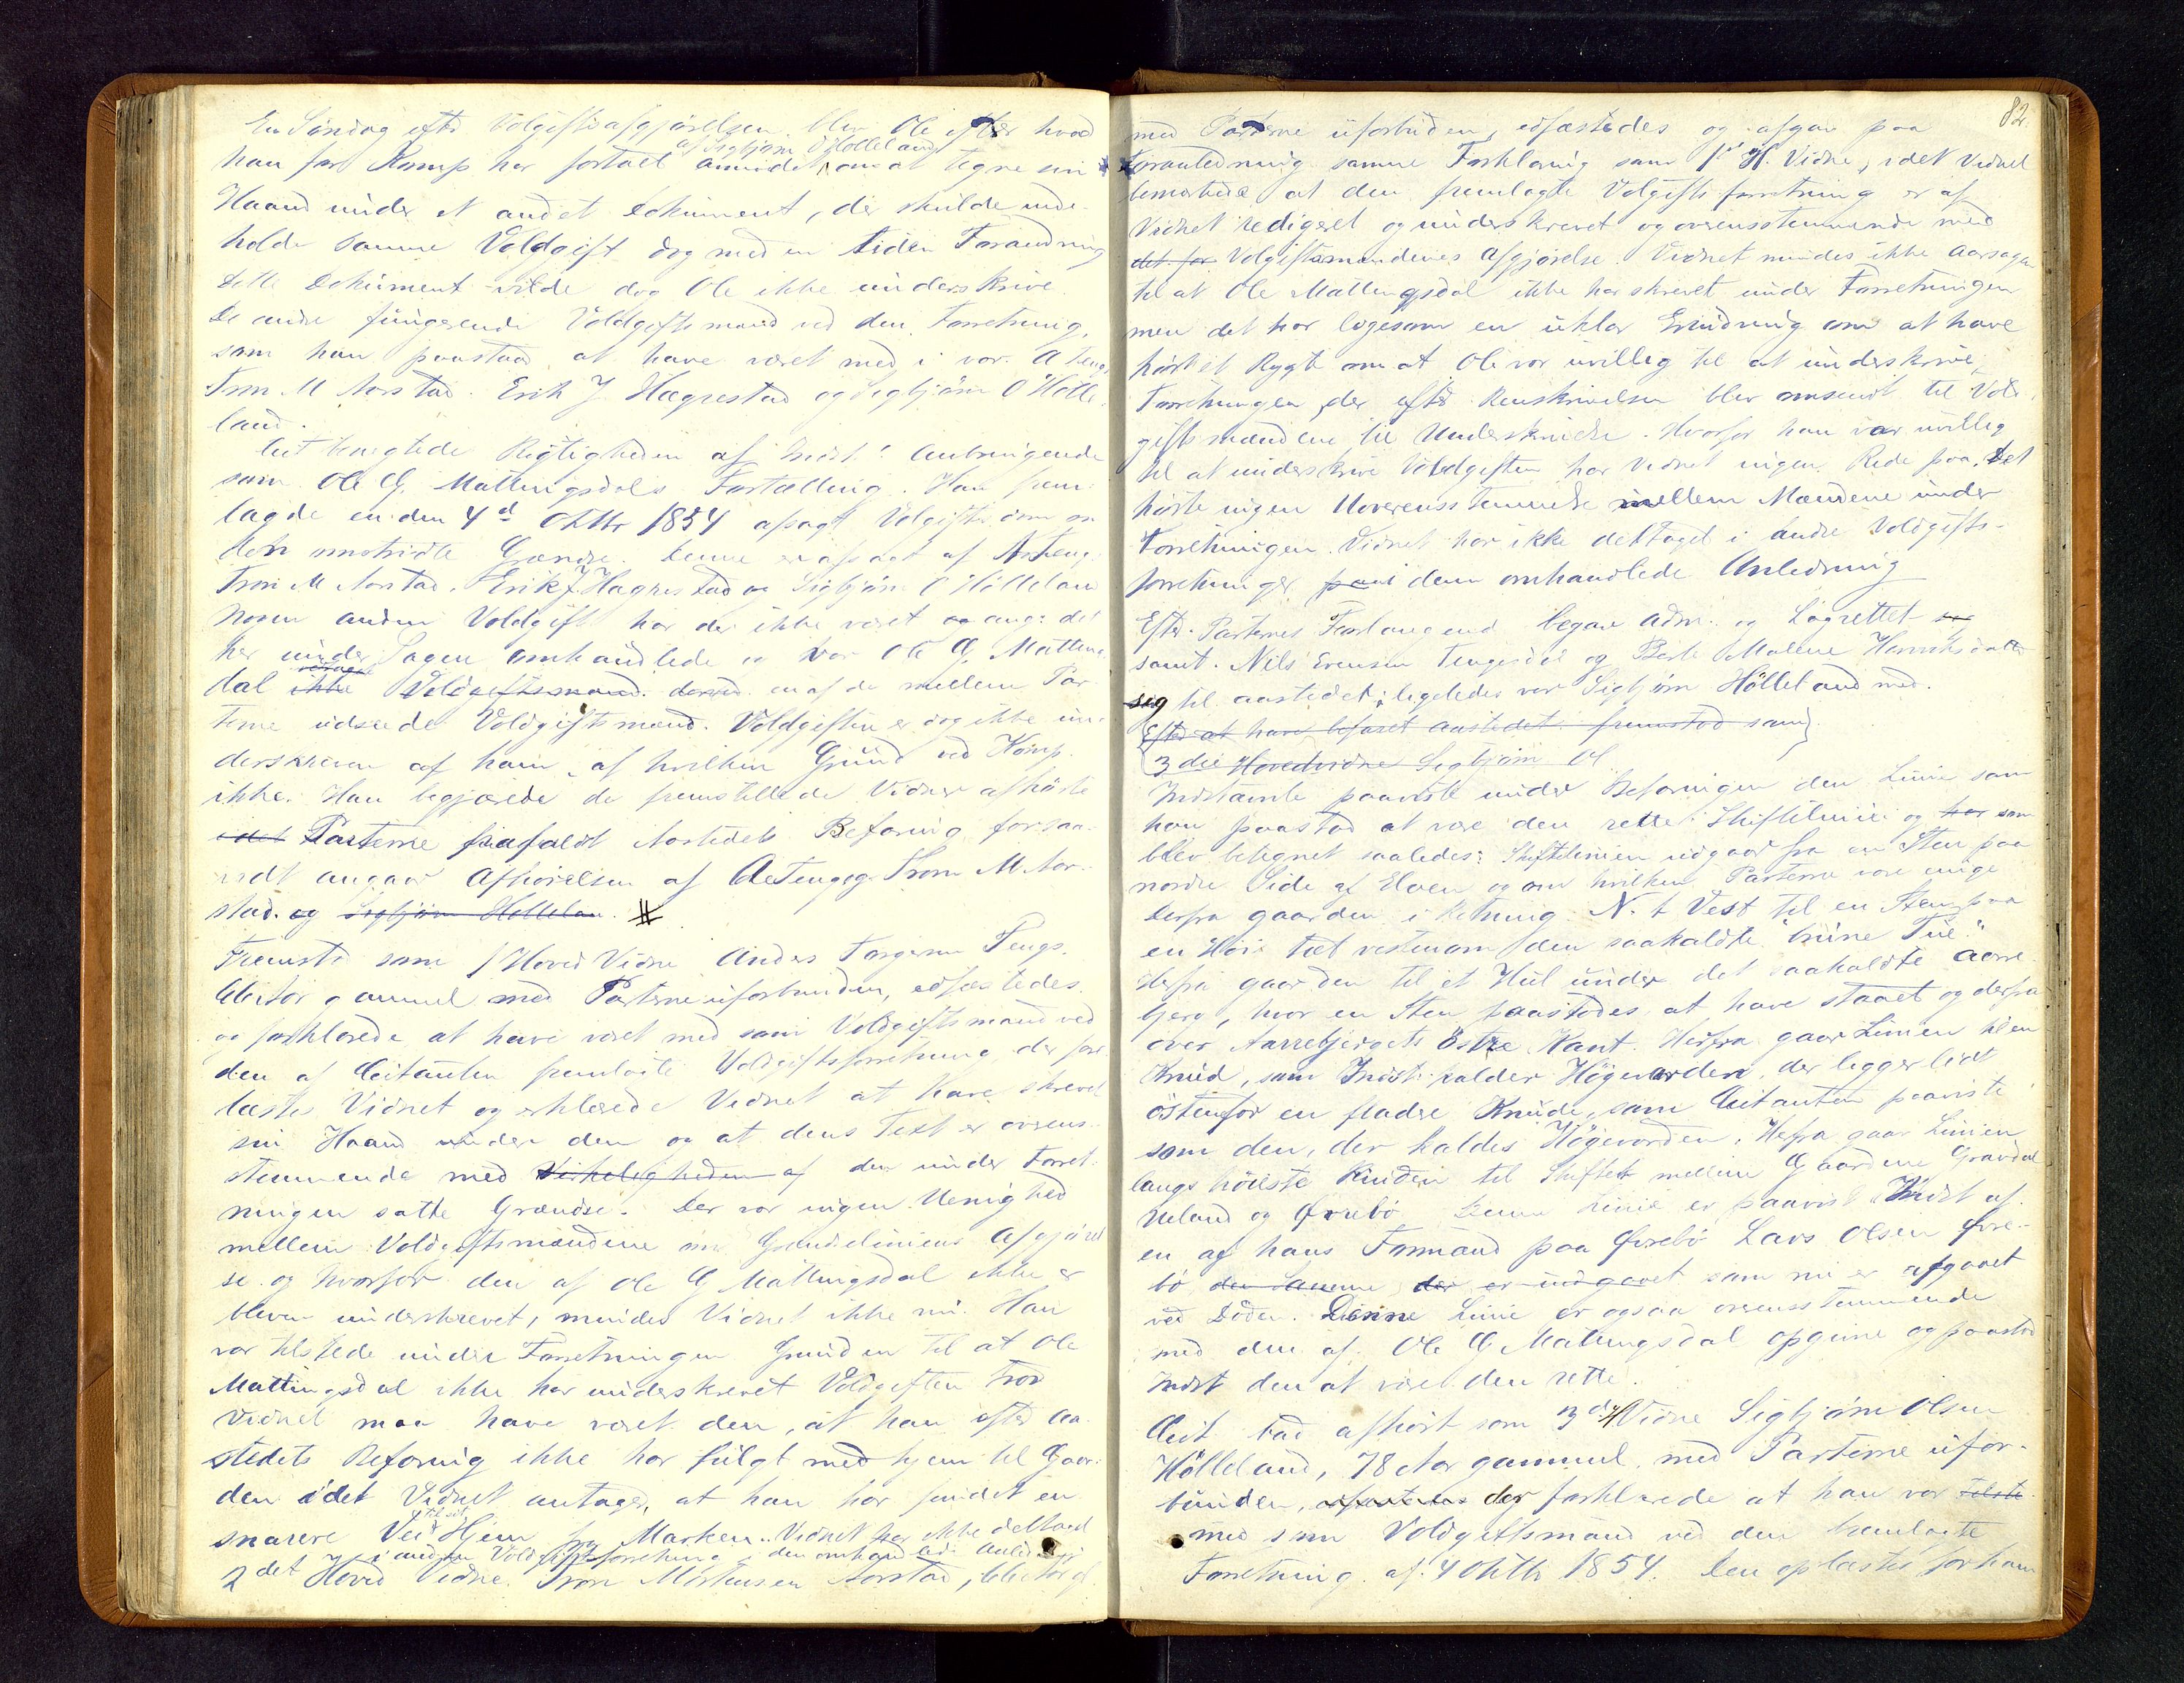 En Söndag efter Volgiftsafgjörelsen blev Ole efter hvad
af Sigbjörn O Hölleland
han for Komp har fortalt anmodet om at tegne sin
Haand under et andet Dokument, der skulde inde-
holde samme Voldgift dog med en liden Forandring
dette Dokument vilde dog Ole ikke underskrive
De andre fungerende Voldgiftsmænd ved den Forretning,
som han paastaar at have været med i var A Tengs,
Tron M Aarstad. Erik J. Hægrestad og Sigbjörn O Hölle
land.
Cit benegtede Rigtigheden af Indst's Anbringende
som Ole G. Mattingsdals Fortælling. Han frem-
lagde en den 4de Oktbr 1854 afsagt Volgiftsdom om
den omstridte Grændse. Denne er afsagt af A Tengs
Tron M Aarstad, Erik J Hægrestad og Sigbjörn O Hölleland
Nogen anden Voldgift har der ikke været ang: det
her under Sagen omhandlede og var Ole G. Mattings
dal ikke Voldgiftsmand. derved en af de mellem Par-
terne udseede Voldgiftsmænd. Voldgiften er dog ikke un-
derskreven af ham, af hvilken Grund ved Komp.
ikke. Han begjærede de fremstillede Vidner afhörte
idet Parterne frafaldt Aastedets Befaring forsaa-
vidt angaar Afhörelsen af A Tengs Tron M. Aar-
stad. og Sigbjörn Hölleland. #
Fremstod som 1 Hoved Vidne Anders Torgersen Tengs.
Aar gammel med Parterne uforbunden, edfæstedes
og forklarede at have været med som Voldgiftsmand ved
den af Citanten fremlagte Voldgiftsforretning der fore
læstes Vidnet og erklærede Vidnet at have skrevet
sin Haand under den og at dens Text er overens-
stemmende med Virkeligheden af den under Forret-
ningen satte Grændse. Der var ingen Uenighed
mellem Voldgiftsmændene om Grændseliniens Afgjörel
se og hvorfor den af Ole G Mattingsdal ikke er
bleven underskrevet, mindes Vidnet ikke nu. Han
var tilstede under Forretningen Grunden til at Ole
Mattingsdal ikke har underskrevet Voldgiften tror
Vidnet maa have været den, at han efter Aa-
stedets Befaring ikke har fulgt med hjem til Gaar-
den idet Vidnet antager, at han har fundet en
til sit
snarere Vei Hjem fra Marken. Vidnet har ikke deltaget
i anden Voldgiftsforretning i den omhandlede Anledning
2det Hoved Vidne. Tron Mortensen Aarstad,
82
med Parterne uforbuden, edfæstedes og afgav paa
Foranledning samme Forklaring som 1ste H. Vidne, idet Vidnet
bemærkede at den fremlagte Volgiftsforretning er af
Vidnet redigeret og underskrevet og overensstemmende med
det for Volgiftsmændenes Afgjörelse. Vidnet mindes ikke Aarsagen
til at Ole Mattingsdal ikke har skrevet under Forretningen
men det har ligesom en uklar Erindring om at have
hört et Rygte om at Ole var uvillig til at underskrive
Forretningen, der efter Renskrivelsen blev omsendt til Vold-
giftsmændene til Underskrift. Hvorfor han var uvillig
til at underskrive Voldgiften har Vidnet ingen Rede paa. Det
hörte ingen Uoverensstemmelse mellem Mændene under
Forretningen. Vidnet har ikke deltaget i andre Voldgifts-
forretninger paa i den omhandlede Anledning
Efter Parternes Forlangend begav Adm. og Lagrettet
samt Nils Evensen Tengesdal og Berte Malene Henriksdatter
sig til Aastedet; ligeledes var Sigbjörn Hölleland med.
Efter at have befaret Aastedet fremstod som
3die Hovedvidne Sigbjörn Ol
Indstævnte paaviste under Befaringen den Linie som
han paastod at være den rette Skiftelinie og har som
blev betegnet saaledes: Skiftelinien udgaar fra en Sten paa
nordre Side af Elven og om hvilken Parterne vare enige
Derfra gaar den i Retning N. t Vest til en Sten paa
en Höi tæt vestenom den saakaldte "Grüne Tue"
Herfra gaar den til et Hul under det saakaldte Aarre-
bjerg, hvor en Sten paastodes at have staaet og derfra
over Aarrebjergets Östre Kant. Herfra gaar Linien til en
Knud, som Indst. kalder Högevarden, der ligger lidt
östenfor en fladre Knude, som Citanten paaviste
som den, der kaldes Högevorden. Hefra gaar Linien
langs höieste Knuden til Skiftet mellem Gaardene Gravdal
Ueland og Örebö Denne Linie er paavist Indst af
en af hans Formænd paa Örebö Lars Olsen Öre-
bö den Samme der er indgaaet som nu er afgaaet
ved Döden. Denne Linie er ogsaa overensstemmende
med den af Ole G Mattingsdal opgivne og paastod
Indst den at være den rette.
Cit. bad afhört som 3die H Vidne Sigbjörn Olsen
Hölleland, 78 Aar gammel med Parterne ufor-
bunden, der forklarede at han var tilste
med som Voldgiftsmand ved den fremlagte
Forretning af 4 Oktbr 1854. Den oplæstes for ham